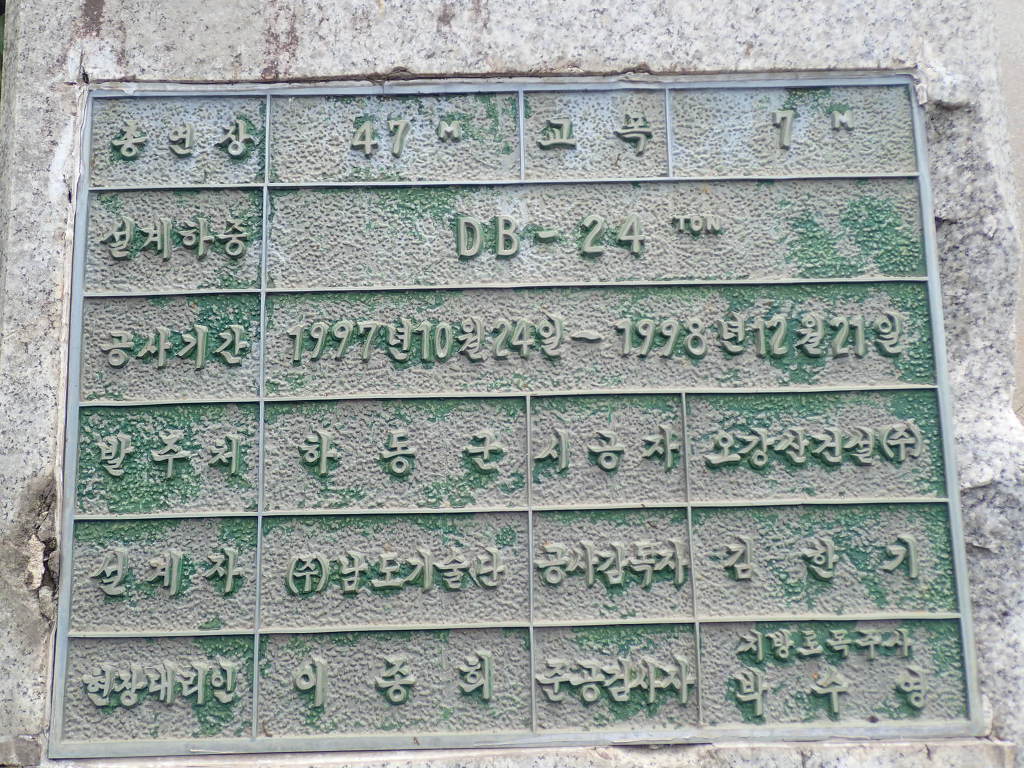 총연장 47M 교폭 7M
설계하중 DB-24 TON
공사기간 1997년10월24일~1998년12월21일
발주처 하동군 시공자 오강산건설(주)
설계자 (주)남도기술단 공사감독자 김한기
현장대리인 이종회 준공검사자 지방토목주사
박수영